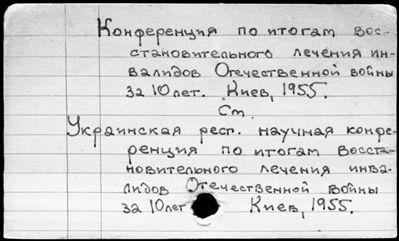 Конференция по итогам вос-
становительного лечения ин-
валидов Отечественной войны
за 10 лет. Киев, 1955.
См.
Украинская респ. научная конфе-
ренция по итогам восста-
новительного лечения инва-
лидов Отечественной войны
за 10 лет Киев, 1955.